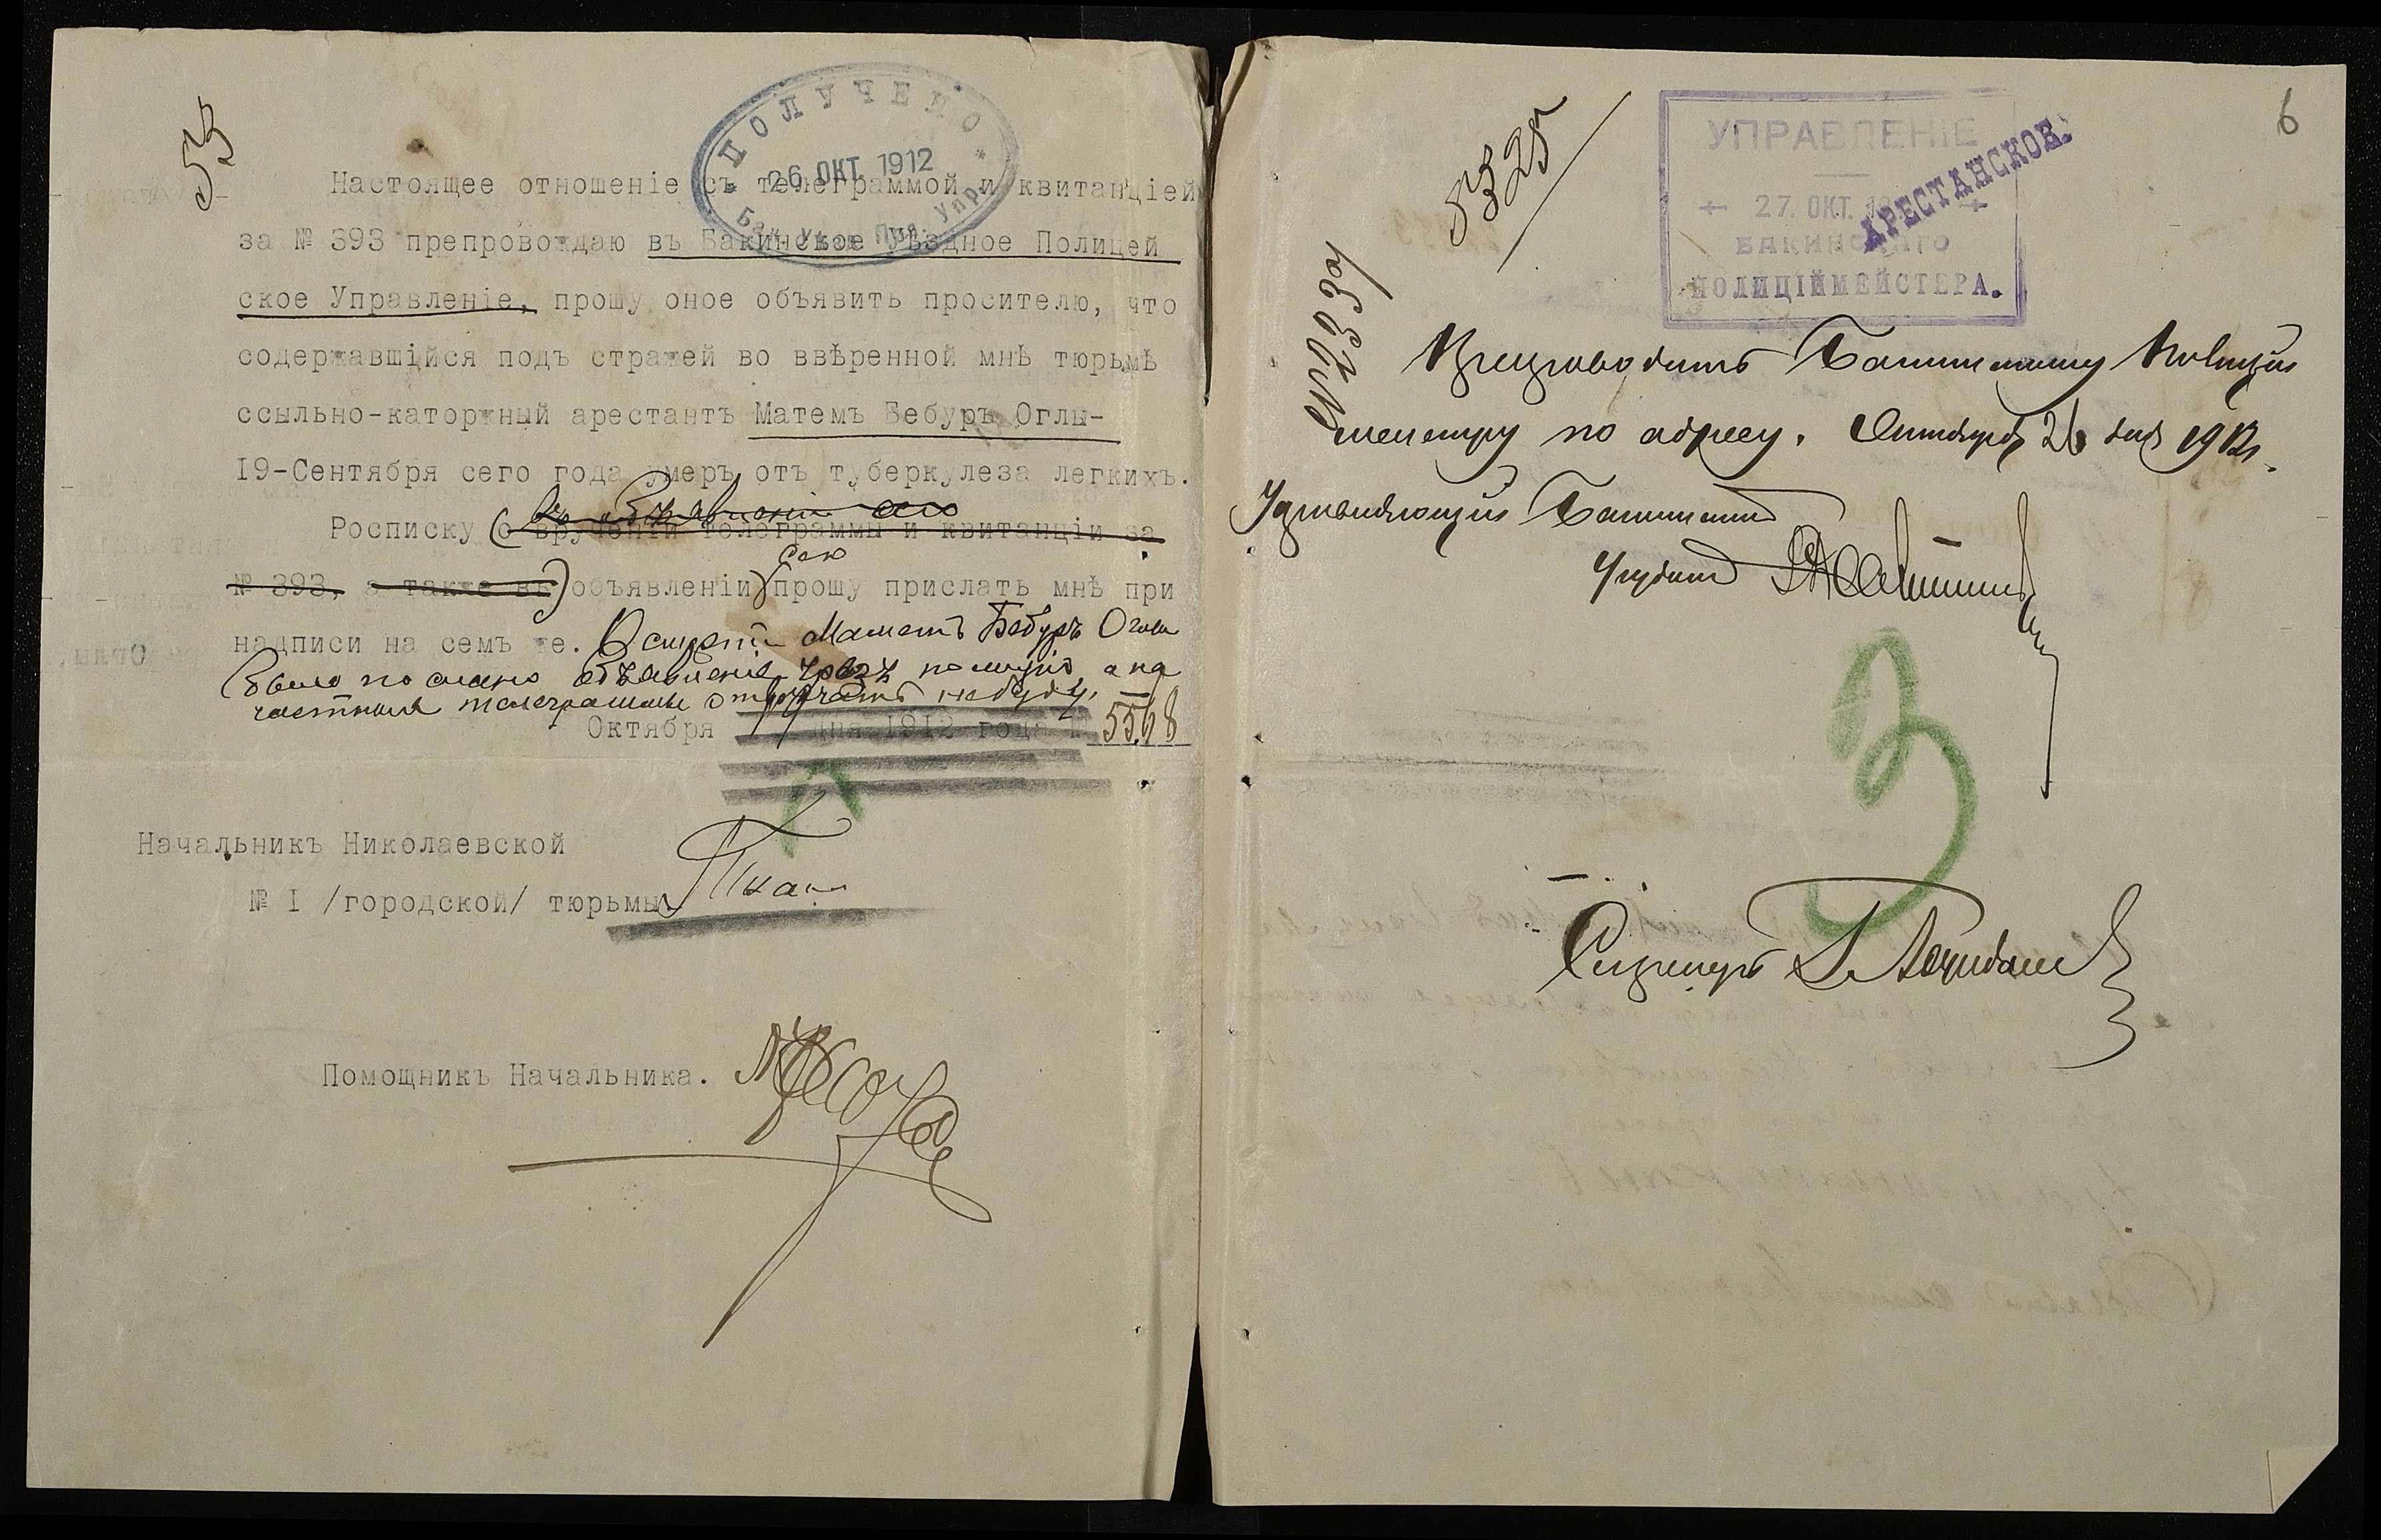 53
ПОЛУЧЕНО
26 ОКТ. 1912
Настоящее отношеніе съ телеграммой и квитанціей
за № 393 препровождаю въ Бакинское Уѣздное Полицей
ское Управленіе, прошу оное объявить просителю, что
содержавшійся подъ стражей во ввѣренной мнѣ тюрьмѣ
ссыльно-каторжный арестантъ Матемъ Бебуръ Оглы-
19-Сентября сего года умеръ отъ туберкулеза легкихъ.
въ объявленіи сего
Росписку (о врученіи телеграммы и квитанціи за
сего
№ 393, а также въ) объявленіи прошу прислать мнѣ при
надписи на семъ же. О смерти Маметъ Бебуръ Оглы
было послано объявленіе чрезъ полицію, а на
частныя телеграммы отвѣчать не буду.
Октября дня 1912 года № 5568
Начальникъ Николаевской
№ I /городской/ тюрьмы
Помощникъ Начальника.
6
5325
УПРАВЛЕНІЕ
27. ОКТ.
БАКИНСКАГО
ПОЛИЦІЙМЕЙСТЕРА.
АРЕСТАНСКОЕ.
Препроводить Бакинскому Полицій
мейстеру по адресу. Октября 26 дня 1912 г.
Управляющій Бакинскимъ
Секретарь